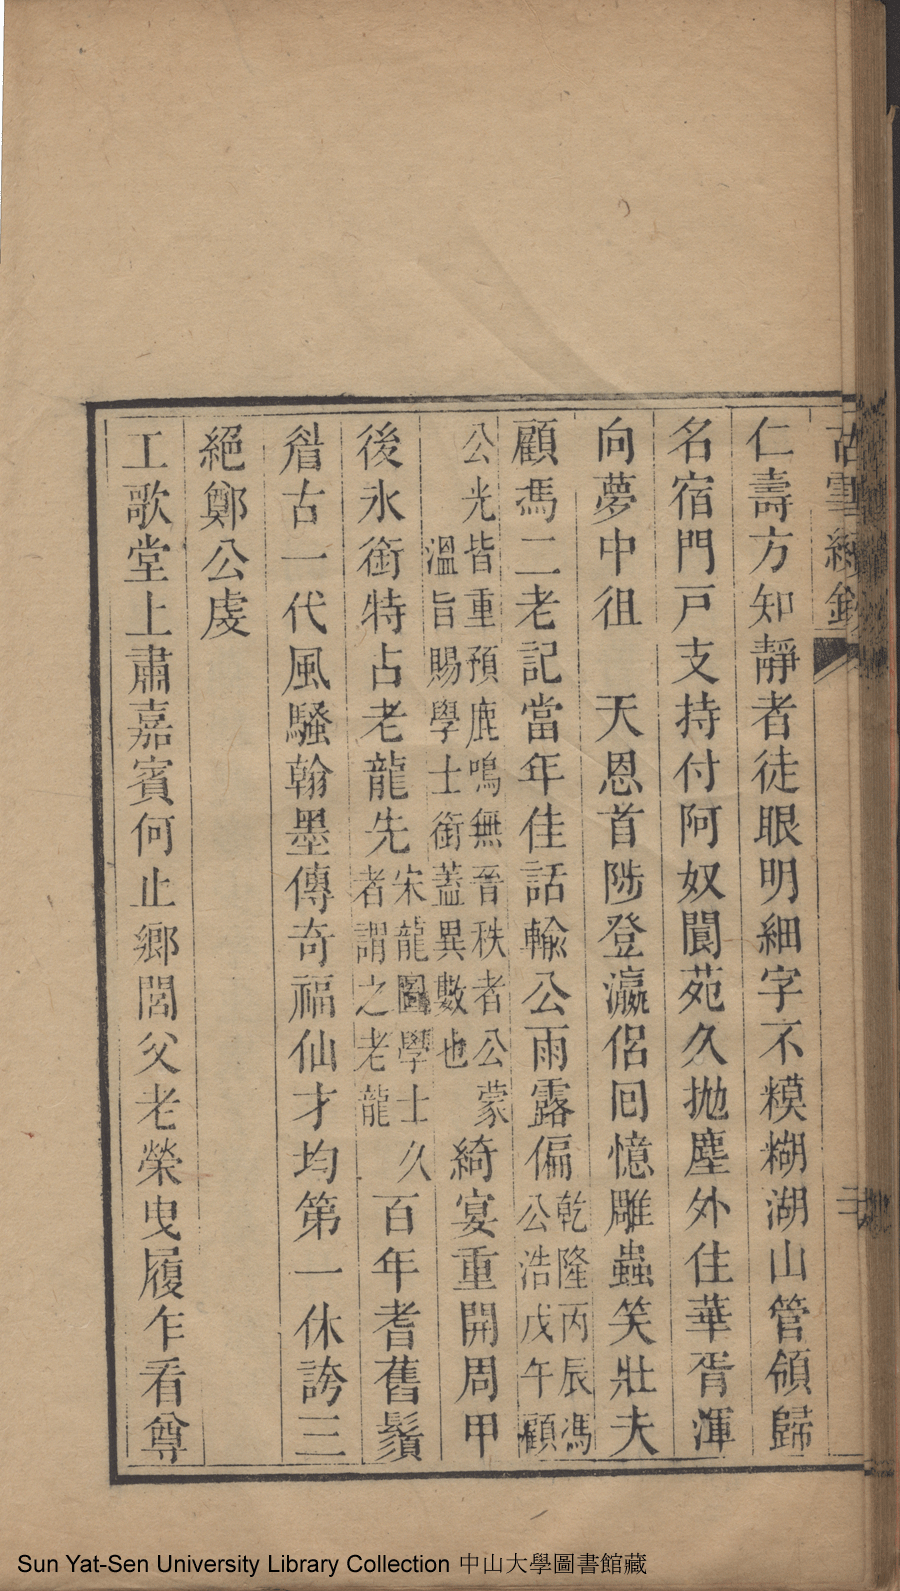 古雪
二
仁壽方知靜者徒眼明細字不糢糊湖山管領歸
名宿門戸支持付阿奴閬苑久抛塵外住華胥渾
向夢中徂　天恩首陟登瀛侶回憶雕蟲笑壯夫
顧馮二老記當年佳話輸公雨露偏乾隆丙辰馮
公浩戊午顧
公光皆重預鹿鳴無晉秩者公蒙
溫旨賜學士銜蓋異數也
綺宴重開周甲
後氷銜特占老龍先宋龍圖學士久
者謂之老龍
百年耆舊鬚
眉古一代風騷翰墨傳奇福仙才均第一休誇三
絕鄭公虔
工歌堂上肅嘉賓何止鄉閭父老榮曳履乍看尊
Sun Yat-Sen University Library Collection 中山大學圖書館藏